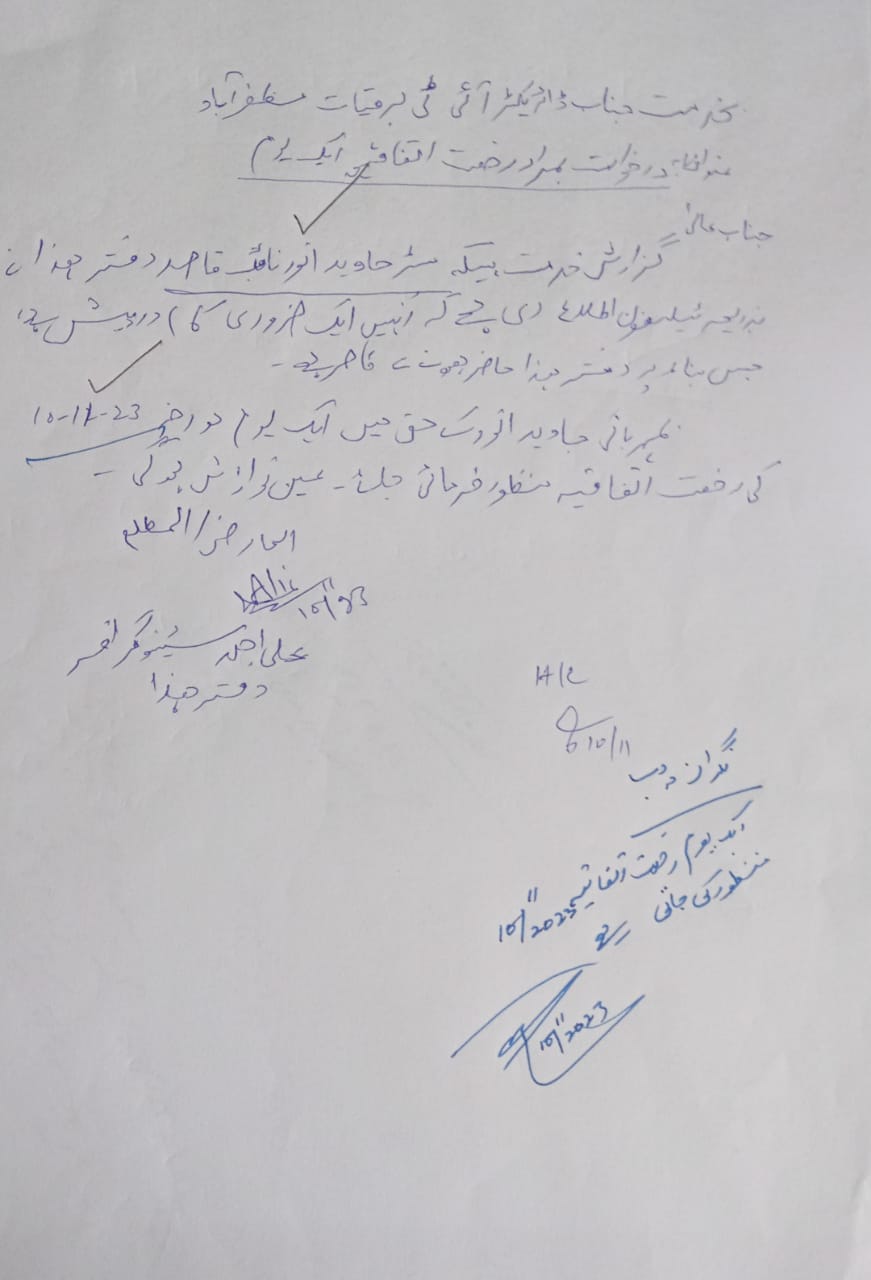 بخدمت جناب ڈائریکٹر آئی ٹی برقیات مظفرآباد
عنوان: درخواست بمراد رخصت اتفاقیہ ایک یوم
جناب عالی
گزارش خدمت ہیکہ مسٹر جاوید انور نائب قاصد دفتر ھذا نے
بذریعہ ٹیلیفون اطلاع دی ہے کہ انہیں ایک ضروری کام درپیش ہے،
جس بناء پر دفتر ہذا حاضر ہونے سے قاصر ہے۔
بمہربانی جاوید انور کے حق میں ایک یوم مورخہ 10-11-23
کی رخصت اتفاقیہ منظور فرمائی جائے۔ عین نوازش ہوگی۔
العارض/المطلع
10/11/23
علی احمد سینوگرافر
دفتر ہذا
10/11
نگران
ایک یوم رخصت اتفاقیہ 10/11/2023
منظور کی جاتی ہے
10/11/2023